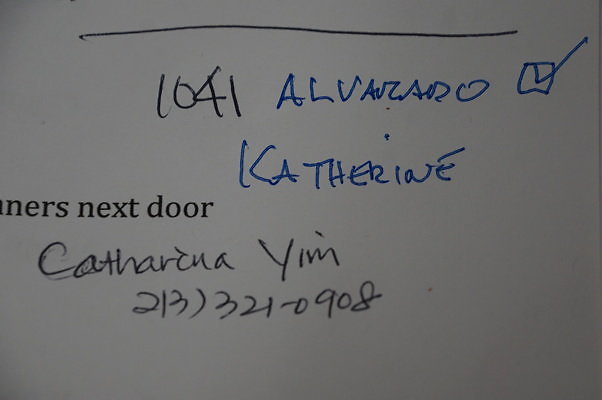 1041 ALVARADO
KATHERINE
nners next door
Catharina Yim
213) 321-0908